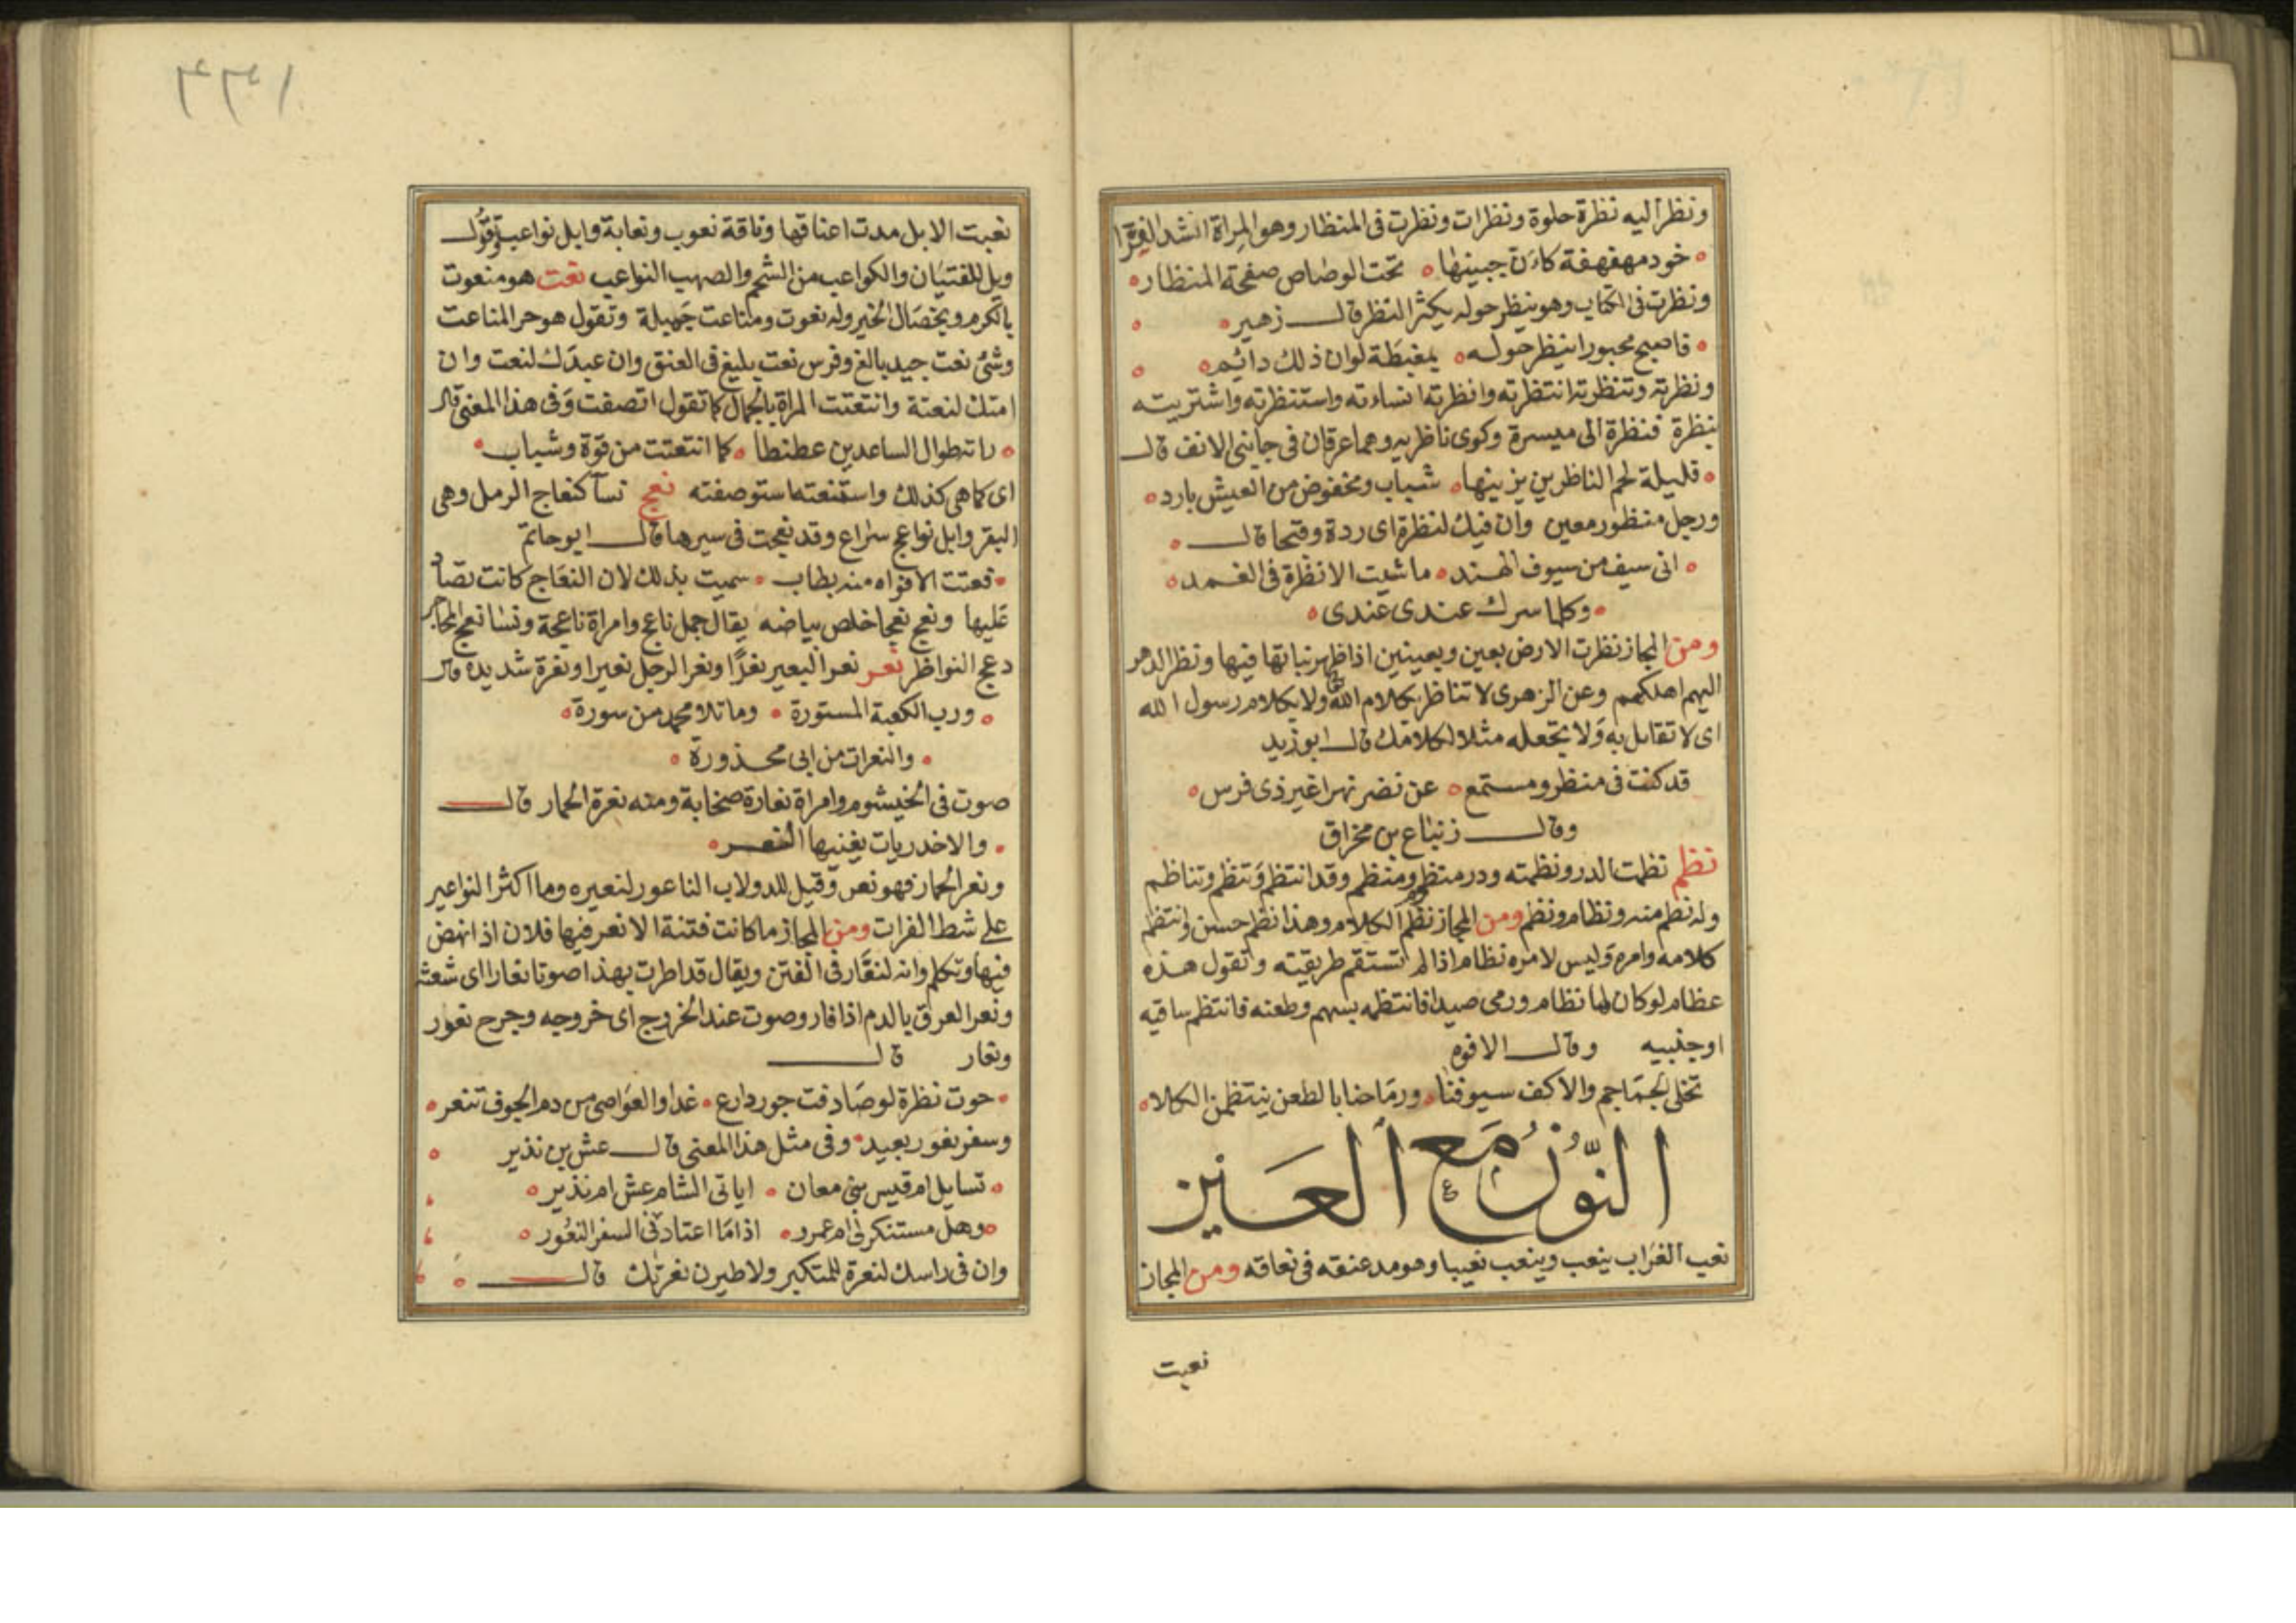 ونظر اليه نظرة حلوة ونظرات ونظرت فى المنظار وهو المرآة انشد الفرّا
خود مهفهفة كاءن جبينها تحت الوصاص صفحة المنظار
ونظرت فى الكتاب وهو ينظر حوله يكثر النظر قال زهير
فاصبح محبورا ينظر حوله بمغبطة لوان ذلك دايم
ونظرته وتنظرته انتظرته وانظرته انساءته واستنظرته واشتريته
بنظرة فنظرة الى ميسرة وكوى ناظريه وهما عرقان فى جانبى الانف قال
قليلة لحم الناظرين يزينها شباب ومخفوض من العيش بارد
ورجل منظور معين وان فيك لنظرة اى ردة وقبحا قال
انى سيف من سيوف الهند ما شيت الا نظرة فى الغمد
وكلما سرك عندى عندى
ومن المجاز نظرت الارض بعين وبعينين اذا ظهر نباتها فيها ونظر الدهر
اليهم اهلكهم وعن الزهرى لا تناظر بكلام الله ولا بكلام رسول الله
اى لا تقابل به ولا تجعله مثلا لكلامك قال ابو زيد
قد كنت فى منظر ومستمع عن نضر بهرا غير ذى فرس
وقال زنباع بن مخراق
نظم نظمت الدر ونظمته ودر منظوم ومنظم وقد انتظم وتنظم وتناظم
وله نظم منه ونظام ونظم ومن المجاز نظم الكلام وهذا نظم حسن وانتظم
كلامه وامره وليس لامره نظام اذا لم تستقم طريقته وتقول هذه
عظام لو كان لها نظام ورمى صيدا فانتظمه بسهم وطعنه فانتظم ساقيه
او جنبيه وقال الافوه
تخلى الجماجم والاكف سيوفنا ورماحنا بالطعن ينتظمن الكلا
النّون مع العين
نعب الغراب ينعب وينعب نعيبا وهو مد عنقه فى نعاقه ومن المجاز
نعبت
نعبت الابل مدت اعناقها وناقة نعوب ونعابة وابل نواعب وتقول
ويل للفتيان والكواعب من الشحم والصهب النواعب نعت هو منعوت
بالكرم وبخصال الخير وله نعوت ومناعت جميلة وتقول هو حر المناعت
وشئ نعت جيد بالغ وفرس نعت بليغ فى العنق وان عبدك لنعت وان
امتك لنعتة وانتعتت المراة بالجمال كما تقول اتصفت وفى هذا المعنى قال
راتبطوال الساعدين عطنطا كما انتعتت من قوة وشباب
اى كما هى كذلك واستنعته استوصفته نعج نسآ كنعاج الرمل وهى
البقر وابل نواعج سراع وقد نعجت فى سيرها قال ابو حاتم
نعتت الافواه منه بطاب سميت بذلك لان النعاج كانت تصاد
عليها ونعج نعجا خلص بياضه يقال جمل ناعج وامراة ناعجة ونسا نعج المحاجر
دعج النواظر نعر نعر البعير نعرًا ونعر الرجل نعيرا ونعرة شديدة قال
ورب الكعبة المستورة وما تلا محمد من سورة
والنعرات من ابى محذورة
صوت فى الخيشوم وامراة نعارة صخابة ومنه نعرة الحمار قال
والاخدريات يغنيها النعر
ونعر الحمار فهو نعر وقيل للدولاب الناعور لنعيره وما اكثر النواعير
على شط الفرات ومن المجاز ما كانت فتنة الا نعر فيها فلان اذا نهض
فيها وتكلم وانه لنعّار فى الفتن ويقال قد اطرت بهذا صوتا نعارا اى شعته
ونعر العرق بالدم اذا فار وصوت عند الخروج اى خروجه وجرح نعور
ونعار قال
حوت نظرة لو صادفت جوردارع غدا والعواصى من دم الجوف تنعر
وسفر نعور بعيد وفى مثل هذا المعنى قال عش بن نذير
تسايل ام قيس بنى معان اياتى الشام عش ام نذير
وهل مستنكر لى ام عمرو اذا ما اعتادنى السفر النعور
وان فى راسك لنعرة للمتكبر ولاطيرن نعرتك قال